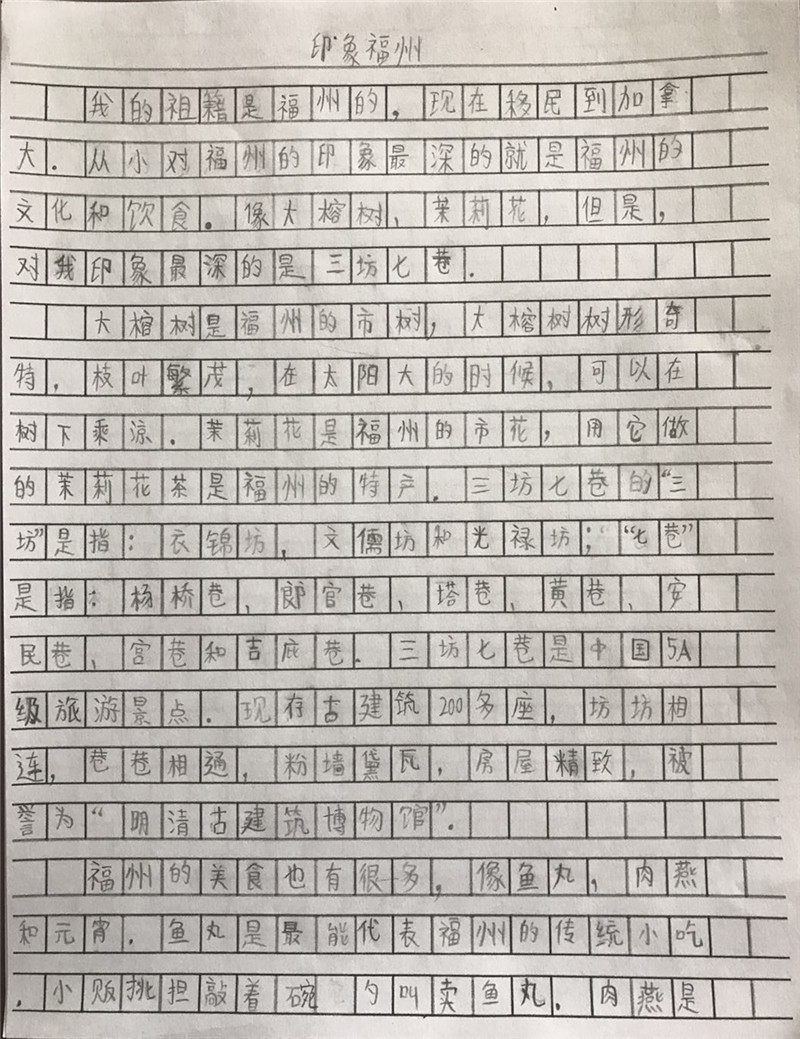 印象福州
我的祖籍是福州的，现在移民到加拿
大．从小对福州的印象最深的就是福州的
文化和饮食。像大榕树、茉莉花，但是，
对我印象最深的是三坊七巷．
大榕树是福州的市树，大榕树树形奇
特，枝叶繁茂，在太阳大的时候，可以在
树下乘凉．茉莉花是福州的市花，用它做
的茉莉花茶是福州的特产．三坊七巷的“三
坊”是指：衣锦坊，文儒坊和光禄坊；“七巷”
是指：杨桥巷、郎官巷、塔巷、黄巷、安
民巷、宫巷和吉庇巷．三坊七巷是中国5A
级旅游景点．现存古建筑200多座，坊坊相
连，巷巷相通，粉墙黛瓦，房屋精致，被
誉为“明清古建筑博物馆”．
福州的美食也有很多，像鱼丸，肉燕
和元宵．鱼丸是最能代表福州的传统小吃
．小贩挑担敲着碗 勺叫卖鱼丸．肉燕是